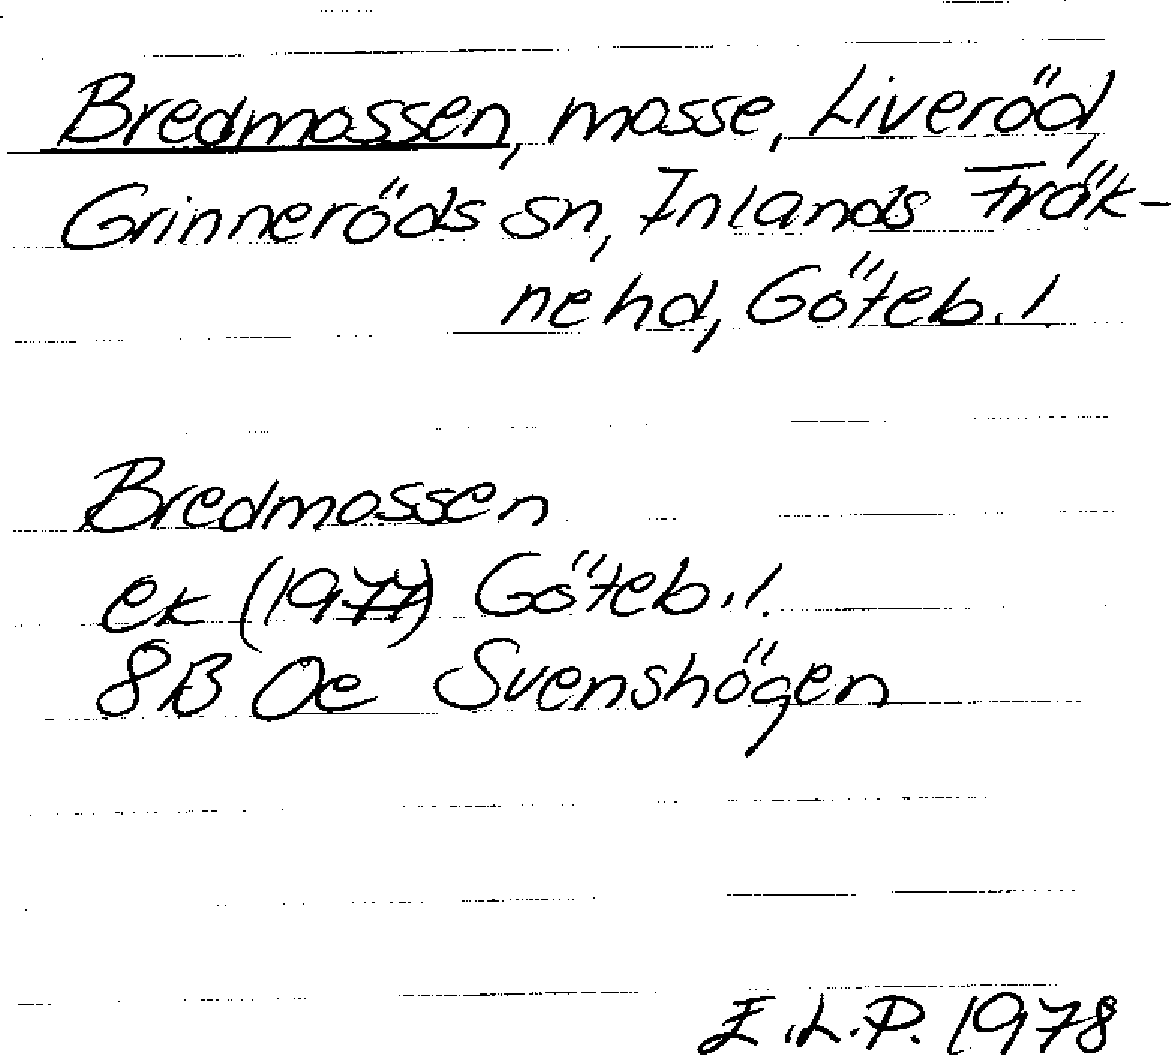 Bredmossen, mosse, Liveröd,
Grinneröds sn, Inlands Fräk-
ne hd, Göteb. l.
Bredmossen
ek (1977) Göteb. l.
8B 0e Svenshögen
E.L.P. 1978